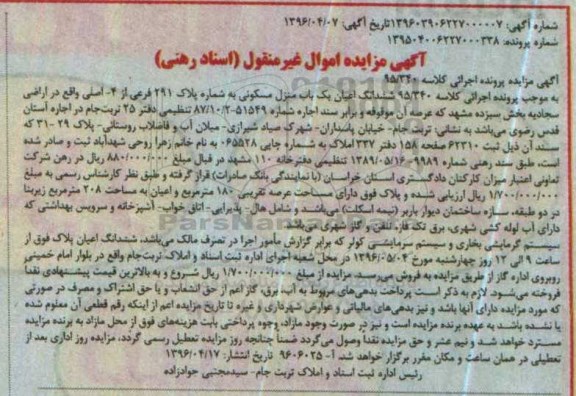 شماره آگهی: ۱۳۹۶۰۳۹۰۶۲۲۷۰۰۰۰۰۷تاریخ آگهی: ۱۳۹۶/۰۴/۰۷
شماره پرونده: ۱۳۹۵۰۴۰۰۶۲۲۷۰۰۰۳۳۸
آگهی مزایده اموال غیرمنقول (اسناد رهنی)
آگهی مزایده پرونده اجرائی کلاسه ۹۵/۳۴۰
به موجب پرونده اجرائی کلاسه ۹۵/۳۴۰ ششدانگ اعیان یک باب منزل مسکونی به شماره پلاک ۲۹۱ فرعی از ۴- اصلی واقع در اراضی
سجادیه بخش سیزده مشهد که عرصه آن موقوفه و برابر سند اجاره شماره ۵۱۵۴۹-۸۷/۱۰/۲ تنظیمی دفتر ۲۵ تربت‌جام در اجاره آستان
قدس رضوی می‌باشد به نشانی: تربت جام- خیابان پاسداران- شهرک صیاد شیرازی- میلان آب و فاضلاب روستائی- پلاک ۲۹ -۳۱ که
سند آن ذیل ثبت ۶۲۳۱۰ صفحه ۱۵۸ دفتر ۳۳۷ املاک به شماره چاپی ۰۶۵۵۲۸ به نام خانم زهرا روحی شهدآباد ثبت و صادر شده
است، طبق سند رهنی شماره ۹۹۸۹-۱۳۸۹/۰۵/۱۶ تنظیمی دفترخانه ۱۱۰ مشهد در قبال مبلغ ۸۸۰/۰۰۰/۰۰۰ ریال در رهن شرکت
تعاونی اعتبار میزان کارکنان دادگستری استان خراسان (با نمایندگی بانک صادرات) قرار گرفته و طبق نظر کارشناس رسمی به مبلغ
۱/۷۰۰/۰۰۰/۰۰۰ ریال ارزیابی شده و پلاک فوق دارای مساحت عرصه تقریبی ۱۸۰ مترمربع و اعیان به مساحت ۲۰۸ مترمربع زیربنا
در دو طبقه، سازه ساختمان دیوار باربر (نیمه اسکلت) می‌باشد و شامل هال- پذیرایی- اتاق خواب- آشپزخانه و سرویس بهداشتی که
دارای آب لوله کشی شهری، برق تک فاز، تلفن و گاز شهری می‌باشد
سیستم گرمایشی بخاری و سیستم سرمایشی کولر که برابر گزارش مأمور اجرا در تصرف مالک می‌باشد. ششدانگ اعیان پلاک فوق از
ساعت ۹ الی ۱۲ روز چهارشنبه مورخ ۱۳۹۶/۰۵/۰۴ در محل شعبه اجرای اداره ثبت اسناد و املاک تربت‌جام واقع در بلوار امام خمینی
روبروی اداره گاز از طریق مزایده به فروش می‌رسد. مزایده از مبلغ ۱/۷۰۰/۰۰۰/۰۰۰ ریال شروع و به بالاترین قیمت پیشنهادی نقداً
فروخته می‌شود. لازم به ذکر است پرداخت بدهی‌های مربوط به آب، برق، گاز اعم از حق انشعاب و یا حق اشتراک و مصرف در صورتی
که مورد مزایده دارای آنها باشد و نیز بدهی‌های مالیاتی و عوارض شهرداری و غیره تا تاریخ مزایده اعم از اینکه رقم قطعی آن معلوم شده
یا نشده باشد به عهده برنده مزایده است و نیز در صورت وجود مازاد، وجوه پرداختی بابت هزینه‌های فوق از محل مازاد به برنده مزایده
مسترد خواهد شد و نیم عشر و حق مزایده نقداً وصول می‌گردد ضمناً چنانچه روز مزایده تعطیل رسمی گردد، مزایده روز اداری بعد از
تعطیلی در همان ساعت و مکان مقرر برگزار خواهد شد. آ- ۹۶۰۶۰۲۵ تاریخ انتشار: ۱۳۹۶/۰۴/۱۷
رئیس اداره ثبت اسناد و املاک تربت جام- سیدمجتبی جوادزاده